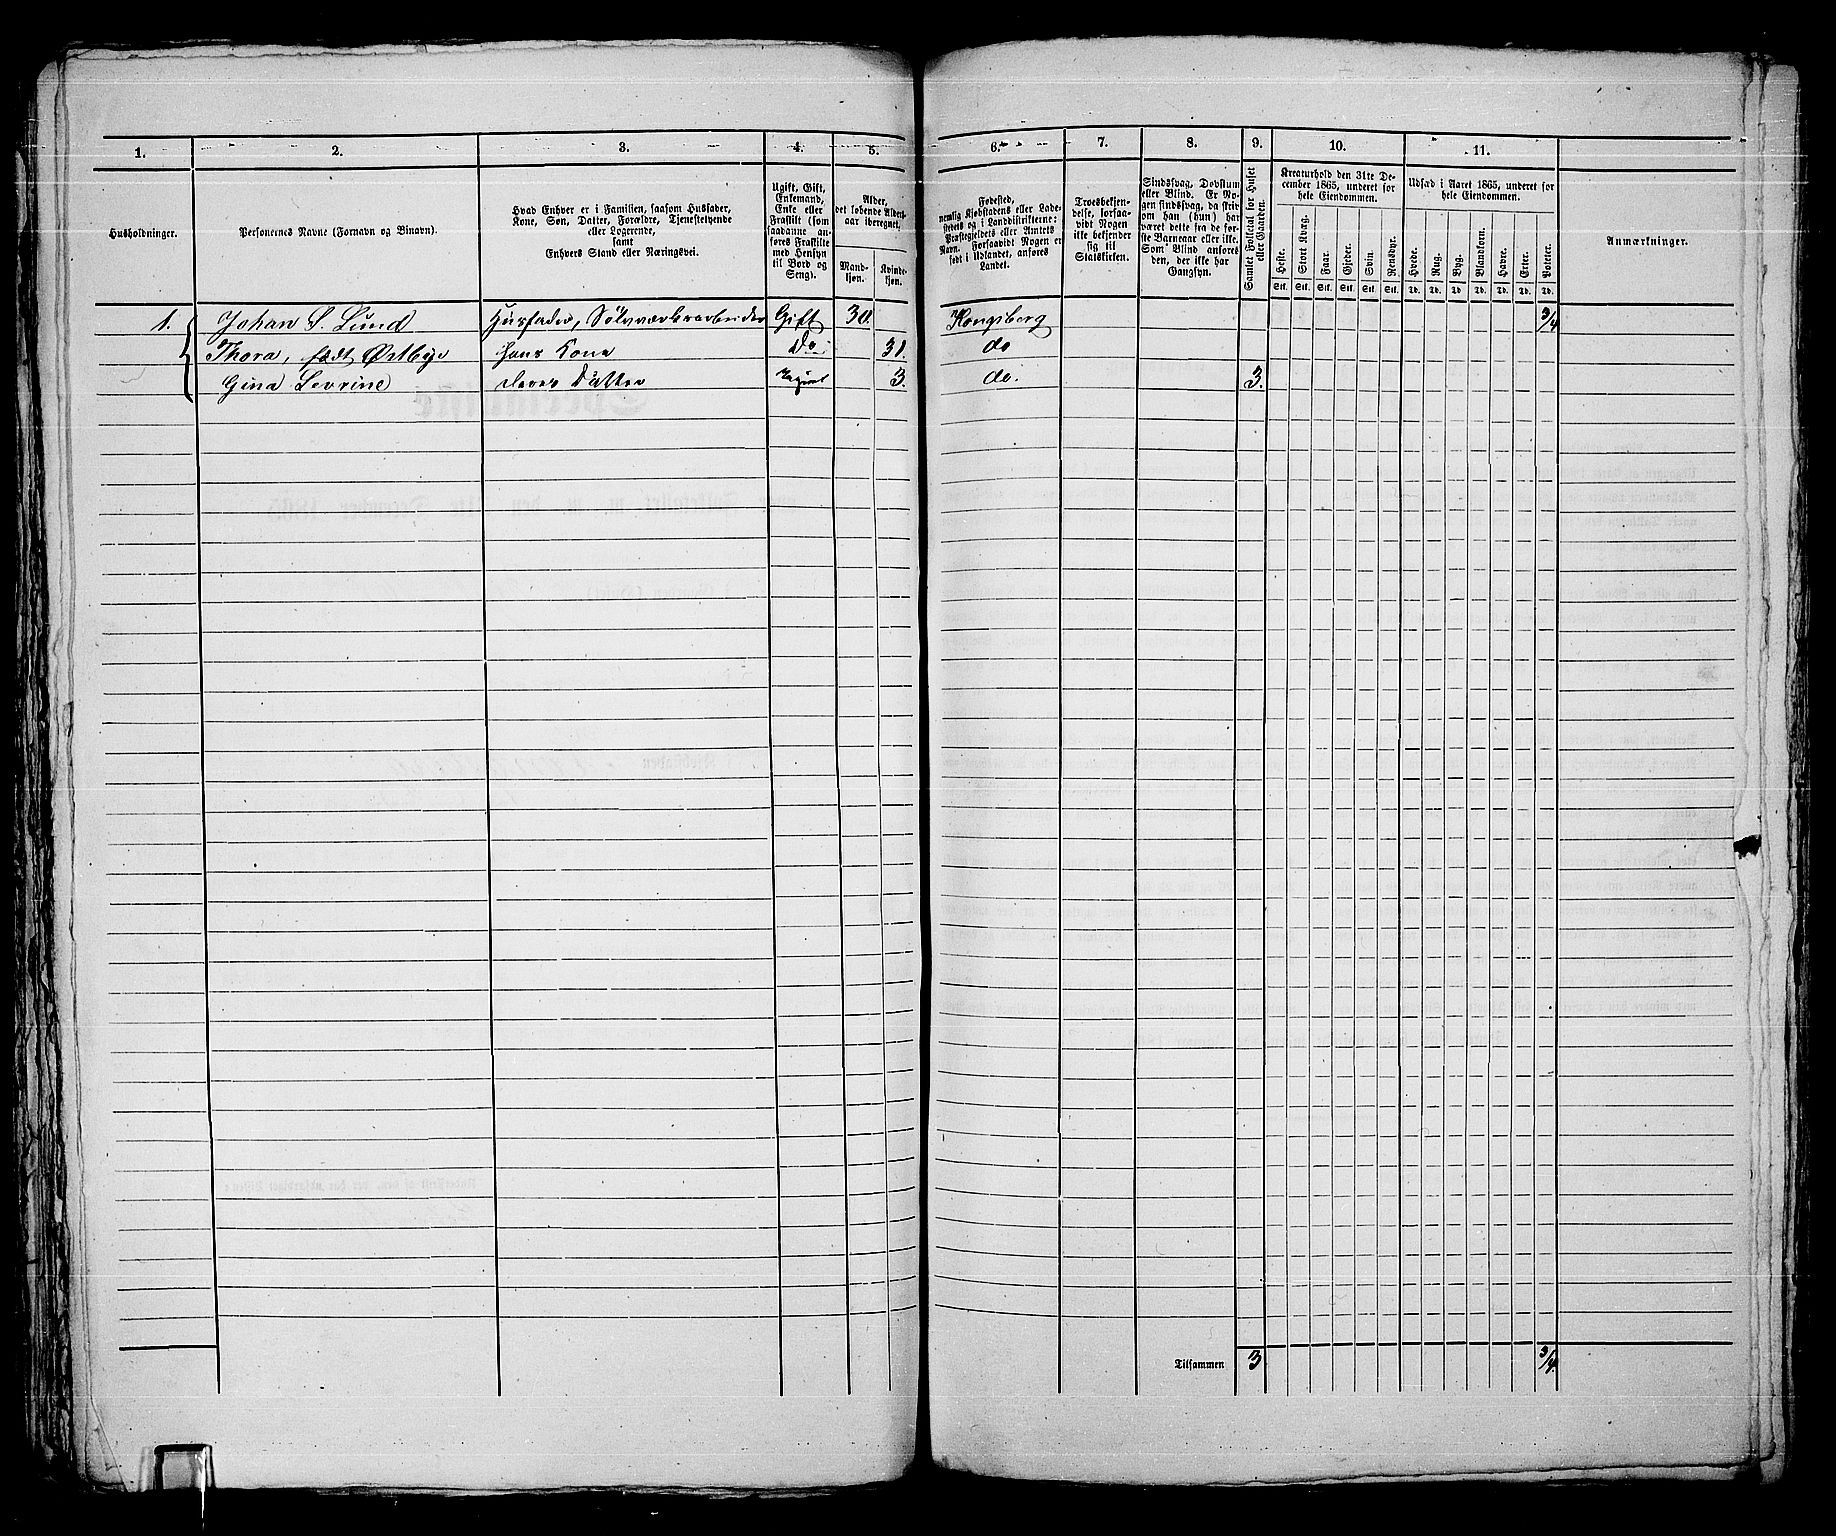 1. 2. 3. 4. 5. 6. 7. 8. 9. 10. 11.
Husholdninger.
Personernes Navne (Fornavn og Binavn).
Hvad Enhver er i Familien, saasom Husfader,
Kone, Søn, Datter, Forældre, Tjenestetyende
eller Logerende,
samt
Enhvers Stand eller Næringsvei.
Ugift, Gift,
Enkemand,
Enke eller
Fraskilt (som
saadanne an-
føres Fraskilte
med Hensyn
til Bord og
Seng).
Alder,
det løbende Alders-
aar iberegnet.
Mand-
kjøn.
Kvinde-
kjøn.
Fødested,
nemlig Kjøbstadens eller Lade-
stedets og i Landdistrikterne:
Præstegjeldets eller Amtets
Navn. Forsaavidt Nogen er
født i Udlandet, anføres
Landet.
Troesbekjen-
delse, forsaa-
vidt Nogen
ikke bekjender
sig til
Statskirken.
Sindssvag, Døvstum
eller Blind. Er No-
gen sindssvag, da skriv
om han (hun) har
været dette fra de før-
ste Barneaar eller ikke.
Som Blind anføres
den, der ikke har
Gangsyn.
Samlet Folketal for Huset
eller Gaarden.
Kreaturhold den 31te De-
cember 1865, underet for
hele Eiendommen.
Heste. Stort Kvæg. Faar. Gjeder. Svin. Rensdyr.
Stk. Stk. Stk. Stk. Stk. Stk.
Udsæd i Aaret 1865, underet for
hele Eiendommen.
Hvede. Rug. Byg. Blandkorn. Havre. Erter. Poteter.
Td. Td. Td. Td. Td. Td. Td.
Anmærkninger.
1. Johan S. Lund Husfader, Sølvværksarbeider Gift 30. Kongsberg 3/4
Thora, født Østbye hans Kone Do 31. do
Gina Levrine deres Datter Ugift 3. do. 3.
Tilsammen 3 3/4.